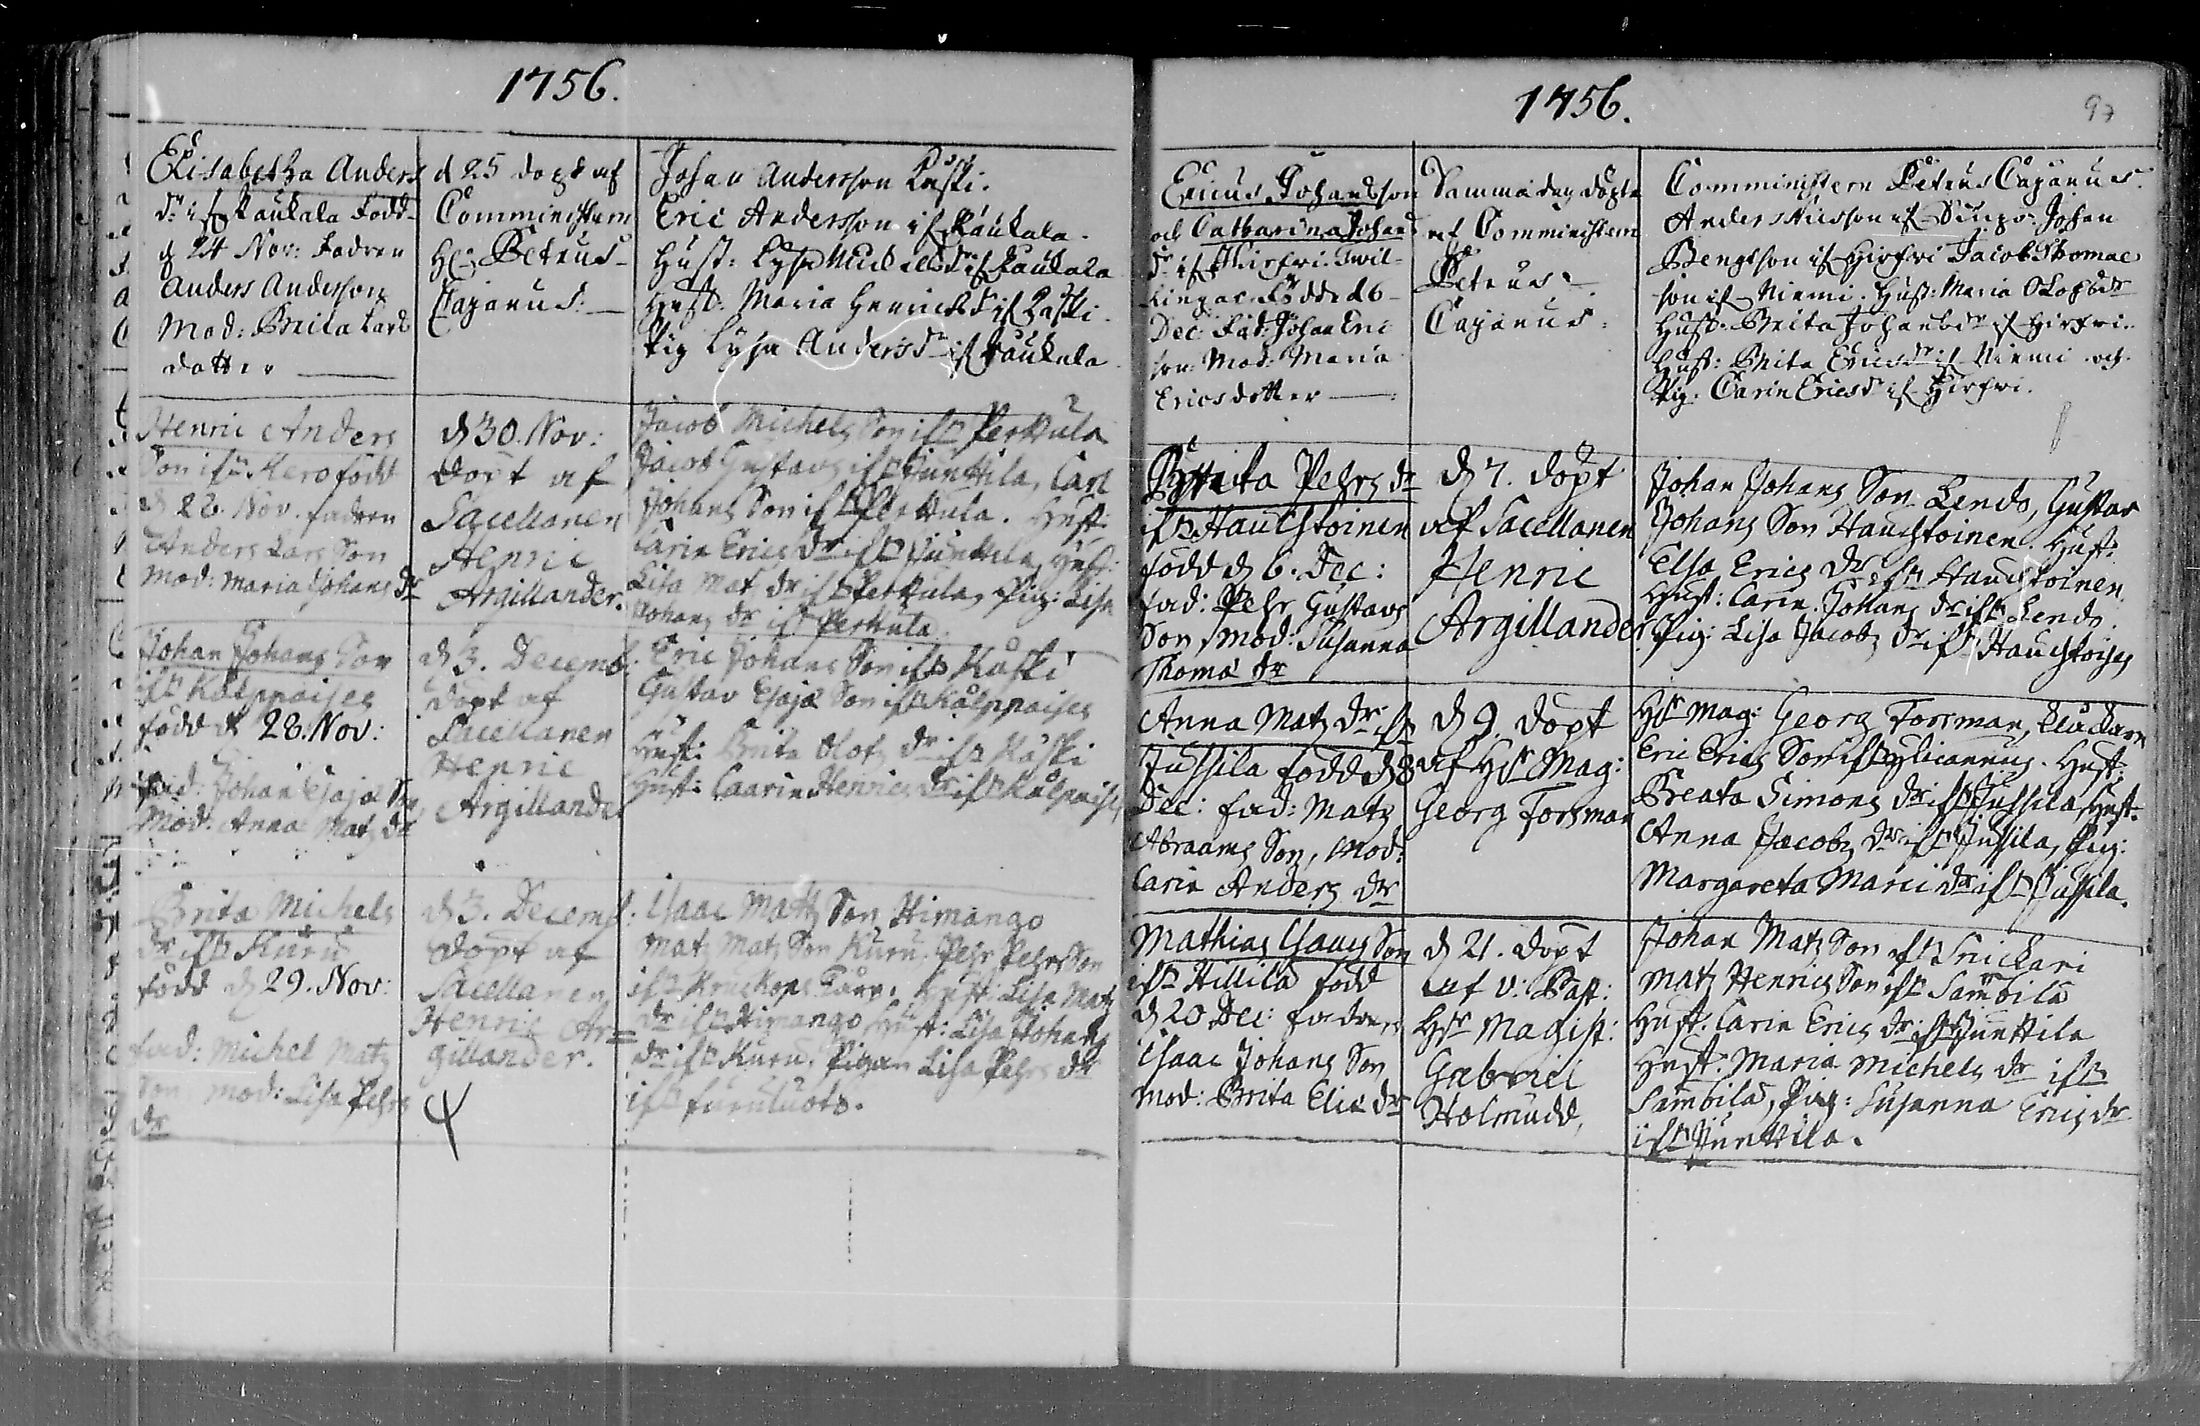 1756.
Elisabetha Anders
dr if Raukala Född
d 24 Nov: Fadren
Anders Andersson
Mod: Brita Lars
dotter
d 25 döpt af
Comministern
Hr: Petrus
Cajanus:
Johan Andersson Kaski.
Eric Andersson if Raukala.
Hust: Lysa Michelsdr if Raukala
Hust: Maria Henricsdr if Kaski.
Pig Lysa Andersdr if Raukala
Henric Anders
Son ifrn Kero född
d 28. Nov. fadren
Anders Lars Son
Mod: Maria Johans dr
d 30. Nov:
döpt af
Sacellanen
Henric
Argillander.
Jacob Michels Son ifrn Perttula
Jacob Gustavs ifrn Junttila, Carl
Johans Son ifrn Perttula. Hust:
Carin Erics dr ifrn Junttila, Hust:
Lisa Mats dr ifrn Perttula, Pig: Lisa
Johans dr ifrn Perttula
Johan Johans Son
ifrn Kälppaises
född d 28. Nov:
fad: Johan Esajæ Son,
Mod: Anna Mats dr
d 3. Decemb.
döpt af
Sacellanen
Henric
Argillander
Eric Johans Son ifrn Kaski
Gustav Esajæ Son ifrn Kälppaises
Hust: Brita Olofs dr ifrn Kaski
Hust: Caarin Henrics dr ifrn Kälpaises
Brita Michels
dr ifrn Kuru
född d 29. Nov:
fad: Michel Mats
Son, mod: Lisa Pehrs
dr
d 3. Decemb.
döpt af
Sacellanen
Henric Ar=
gillander.
Isaac Mats Son Himango
Mats Mats Son Kuru, Pehr Pehrs Son
ifrn Hust: Lisa Mats
dr ifrn Himango Hust: Lisa Johans
dr ifrn Kuru. Pigan Lisa Pehrs dr
ifrn furuluoto.
1756.
97
Ericus Johansson
och Catharina Johans
dr if Hirfvi. Twil-
lingar Födde d 6
Dec: Fad: Johan Eric
son: Mod: Maria
Ericsdotter
Samma dag döpte
af Comministern
Petrus
Cajanus:
Comministern Petrus Cajanus.
Anders Nilsson if Johan
Bengtson if Hirfvi Jacob Thomæ
son if Niemi. Hust: Maria Olofsdr
Hust: Brita Johansdr if Hirfvi.
Hust: Brita Ericsdr if Niemi och
Pig: Carin Ericsdr if Hirfvi.
Britta Pehrs dr
ifrn Hauchtoinen
född d 6. Dec:
fad: Pehr Gustavs
Son, mod: Susanna
Thomæ dr
d 7. döpt
af Sacellanen
Henric
Argillander
Johan Johans Son Lendo, Gustav
Johans Son Hauchtoinen. Hust:
Elsa Erics dr ifrn Hauchtoinen
Hust: Carin Johans dr ifrn Lendo.
Pig: Lisa Jacobs dr ifrn Hauchtoises
Anna Mats dr ifrn
Jussila född d 8
Dec: fad: Mats
Abraams Son, Mod:
Carin Anders dr
d 9. döpt
af Hr Mag:
Georg Forsman
Hr Mag: Georg Forsman, Klockaren
Eric Erics Son Hust:
Beata Simons dr ifrn Jussila, Hust:
Anna Jacobs dr ifrn Jussila, Pig:
Margareta Marci dr ifrn Jussila.
Mathias Isaacs Son
ifrn Hillilä född
d 20 Dec: fadren
Isaac Johans Son
Mod: Brita Eliæ dr
d 21. döpt
af V: Past:
Hr Magist:
Gabriel
Holmudd,
Johan Mats Son ifrn Snickari
Mats Henrics Son ifrn Sambila
Hust: Carin Erics dr ifrn Junttila
Hust: Maria Michels dr ifrn
Sambila, Pig: Susanna Erics dr
ifrn Junttila.